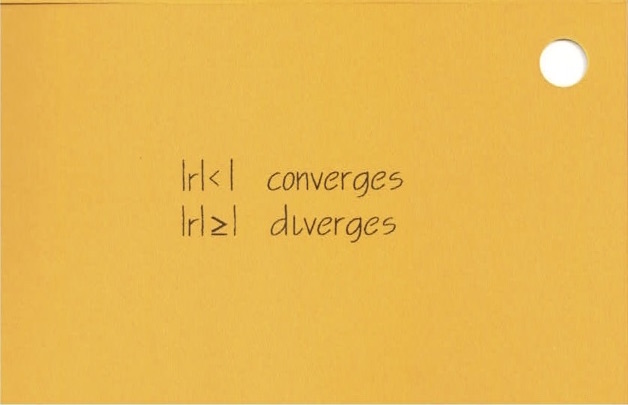 |r|< 1 converges
|r|≥1 diverges